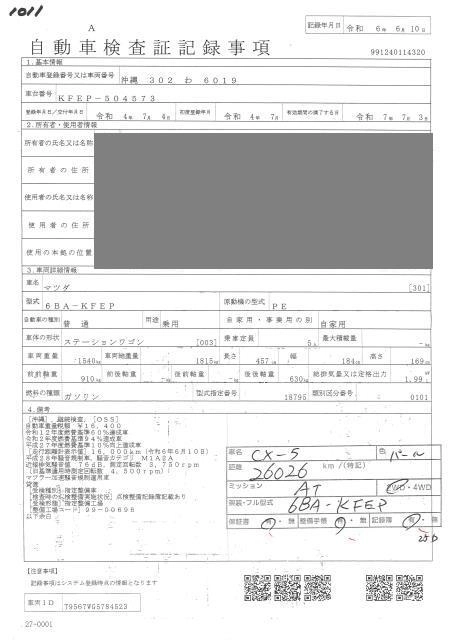 1011
A
記録年月日 令和 6年 6月 10日
自動車検査証記録事項
991240114320
1.基本情報
自動車登録番号又は車両番号 沖縄 302 わ 6019
車台番号 KFEP-504573
登録年月日/交付年月日 令和 4年 7月 4日 初度登録年月 令和 4年 7月 有効期間の満了する日 令和 7年 7月 3日
2.所有者・使用者情報
所有者の氏名又は名称
所有者の住所
使用者の氏名又は名称
使用者の住所
使用の本拠の位置
3.車両詳細情報
車名 マツダ [301]
型式 6BA-KFEP 原動機の型式 PE
自動車の種別 普通 用途 乗用 自家用・事業用の別 自家用
車体の形状 ステーションワゴン [003] 乗車定員 5人 最大積載量 -kg
車両重量 1540kg 車両総重量 1815kg 長さ 457cm 幅 184cm 高さ 169cm
前前軸重 910kg 前後軸重 -kg 後前軸重 -kg 後後軸重 630kg 総排気量又は定格出力 1.99
燃料の種類 ガソリン 型式指定番号 18795 類別区分番号 0101
4.備考
[沖縄],継続検査,[OSS]
自動車重量税額 ¥16,400
令和12年度燃費基準60%達成車
令和2年度燃費基準94%達成車
平成27年度燃費基準10%向上達成車
[走行距離計表示値] 16,000km(令和6年6月10日)
平成28年騒音規制車,騒音カテゴリ M1A2A
近接排気騒音値 76dB,測定回転数 3,750rpm
(旧基準適用時測定回転数 4,500rpm)
マフラー加速騒音規制適用車
[受検種別] 指定整備車
[検査時の点検整備実施状況] 点検整備記録簿記載あり
[受検形態] 指定整備工場
[整備工場コード] 99-00696
以下余白
車名 CX-5 色 パール
距離 26026 km/(特記)
ミッション AT 2WD・4WD
架装・フル型式 6BA-KFEP
保証書 有・無 整備手帳 有・無 記録簿 有・無
[注意事項]
記録事項はシステム登録時点の情報となります
車両ID T9567WG5784523
27-0001